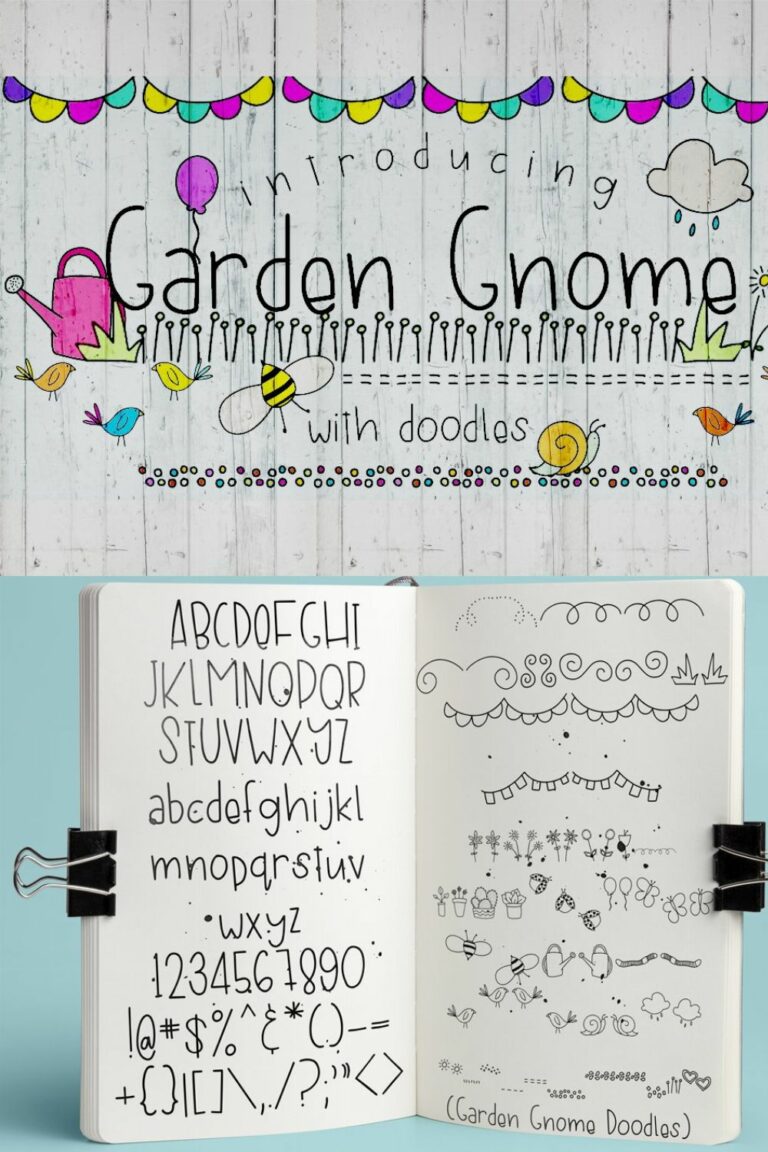 introducing
Garden Gnome
with doodles
ABCDEFGHI
JKLMNOPQR
STUVWXYZ
abcdefghijkl
mnopqrstuv
wxyz
1234567890
!@#$%^&*()-=
+{}|[]\,./?;'"<>
(Garden Gnome Doodles)